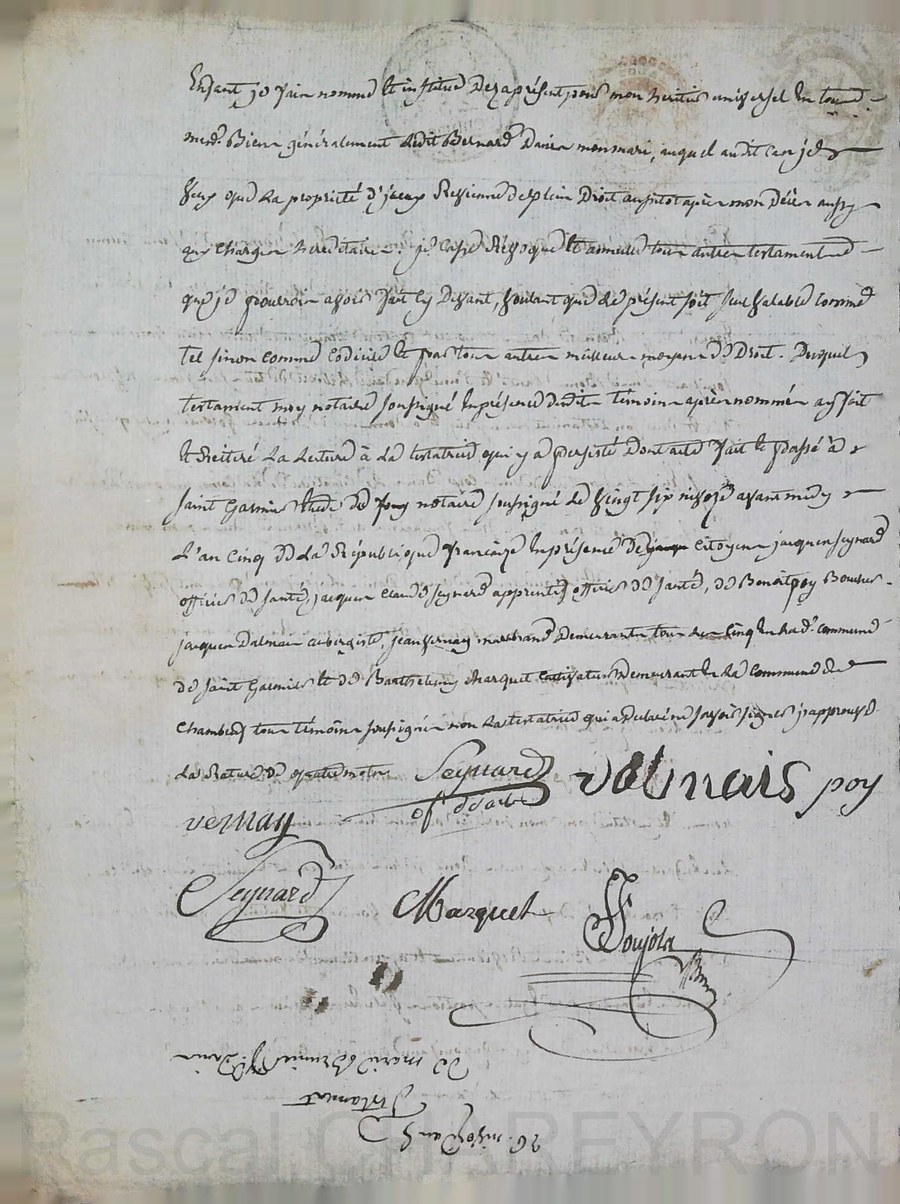 Enfant je fais nomme et institue dez a présent, pour mon heritier universel en tous
mes Biens généralement ledit Bernard mon mari, auquel audit cas je
veux que la propriété d'iceux Revienne de plein Droit aussitot après mon Décès aussy
aux charges hereditaires. je casse Révoque et annulle tous autres testaments
que je pourrois avoir fait cy devant, voulant que le présent soit seul valable comme
tel sinon comme codicile et par tous autres meilleurs moyens de Droit. Duquel
testament moy notaire soussigné en présence desdits témoins après nommés ay fait
et Réitéré la lecture à la testatrice qui y a persisté dont acte fait et passé à
saint Galmier Etude de nous notaire soussigné le vingt six nivoze avant midy
L'an cinq de la République française en présence de citoyens jacques Seynard
officier de santé, jacques Claude Seynard apprentif officier de santé, de Benoit poy Boucher
jacques Dalmais aubergiste, jean Vernay marchand Demeurants tous les cinq en lad. commune
de Saint Galmier et de Barthelemy Marquet cultivateur Demeurant en la commune de
Chambeuf tous témoins soussignés non la testatrice qui a déclaré ne savoir signer j'approuve
la Rature de quatre mots
Seynard
of de santé
Dalmais poy
vernay
Seynard
Marquet
26. nivoze an 5
Testament
de marie